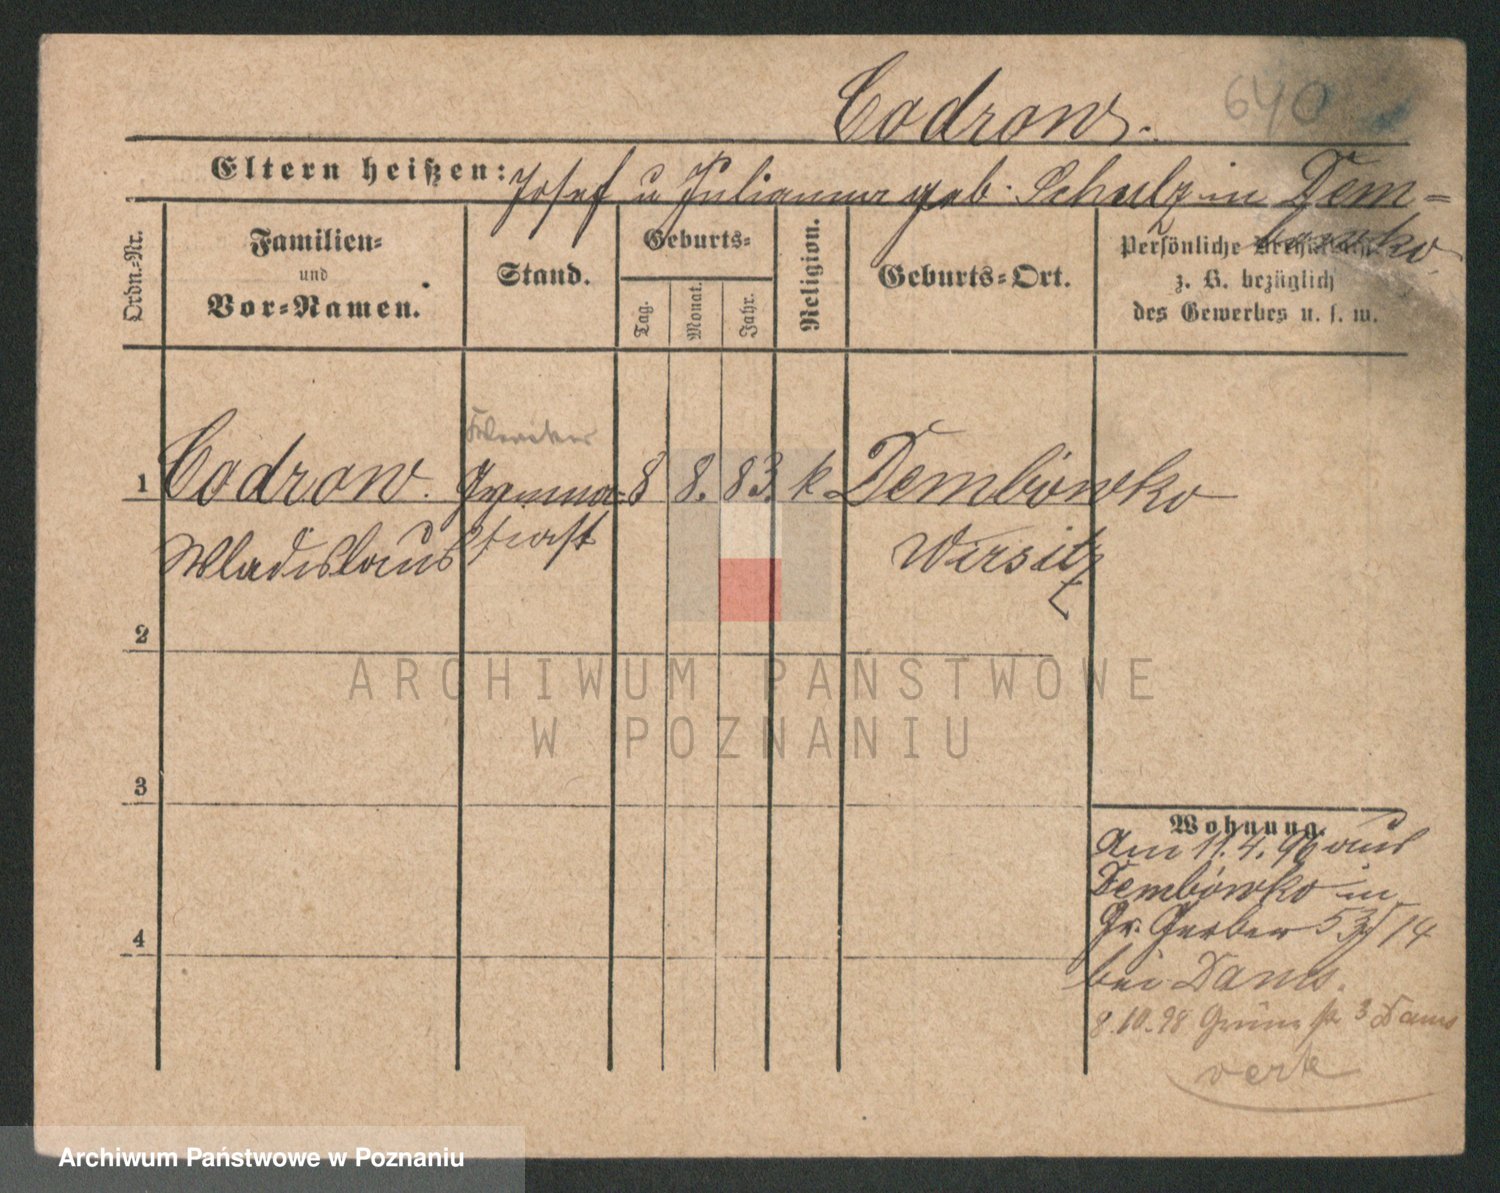 640
Codrow.
Eltern heißen: Josef u Julianna geb. Schulz in Dem=
bowko
Ordn.-Nr.
Familien=
und
Vor=Namen.
Stand.
Geburts=
Tag.
Monat.
Jahr.
Religion.
Geburts=Ort.
Persönliche
z. B. bezüglich
des Gewerbes u. s. w.
1 Codrow. Gymna= 8 8. 83. k. Dembówko
Wladislaus siast Wirsitz
2
ARCHIWUM PAŃSTWOWE
W POZNANIU
3
Wohnung.
Am 11.4.96 aus
Dembówko in
Gr. Gerber 53/14
4
bei Dams.
8.10.98 3 Dams
verte
Archiwum Państwowe w Poznaniu